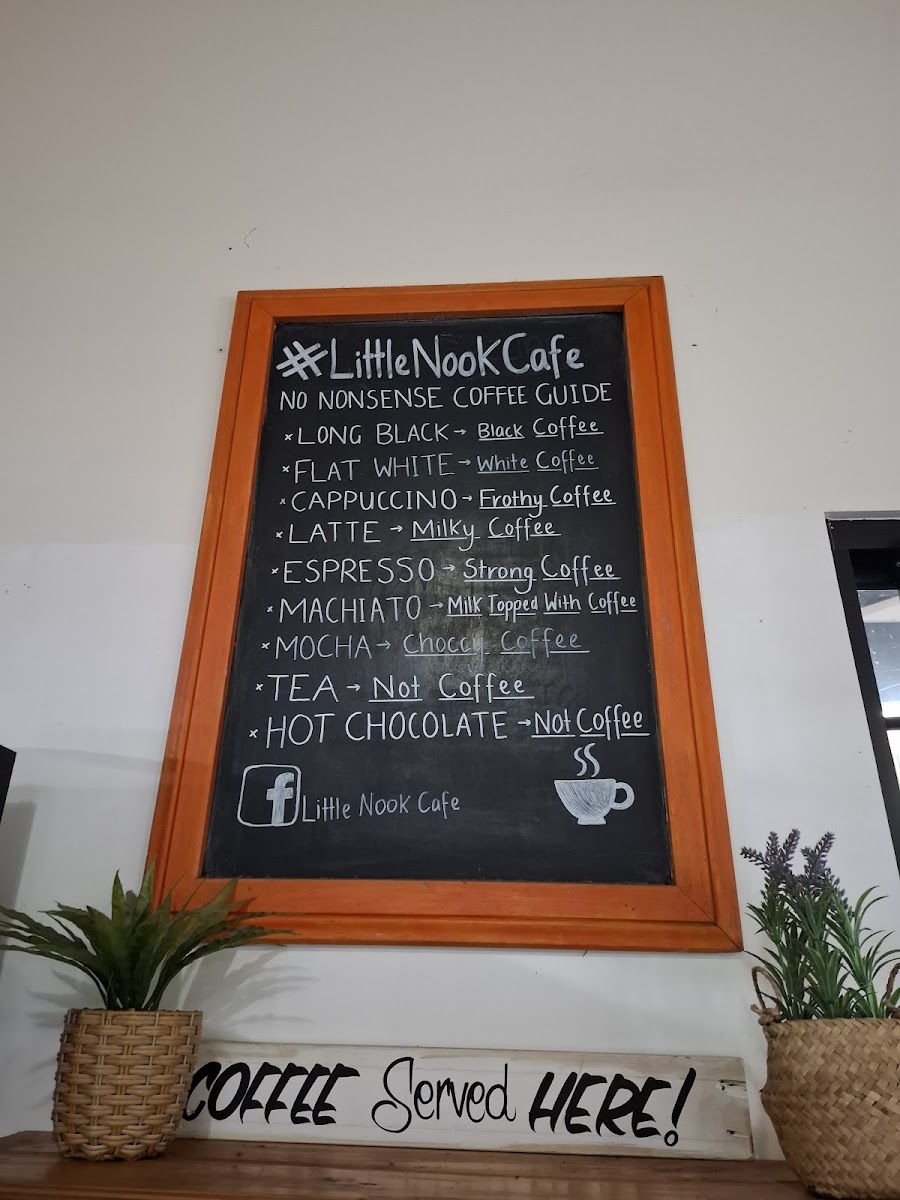 #LittleNookCafe
NO NONSENSE COFFEE GUIDE
×LONG BLACK→ Black Coffee
×FLAT WHITE→White Coffee
×CAPPUCCINO→Frothy Coffee
×LATTE → Milky Coffee
×ESPRESSO→ Strong Coffee
×MACHIATO→Milk Topped With Coffee
×MOCHA→ Choccy Coffee
×TEA→ Not Coffee
×HOT CHOCOLATE →Not Coffee
f Little Nook Cafe
COFFEE Served HERE!